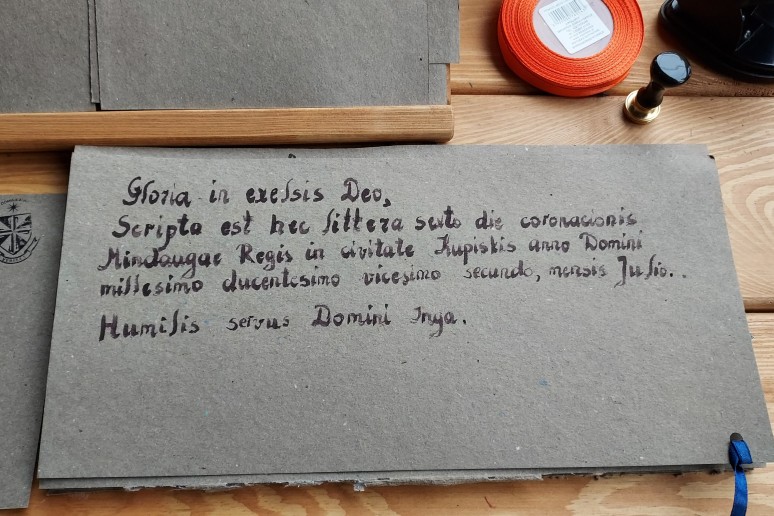 Gloria in exelsis Deo,
Scripta est hec littera sexto die coronacionis
Mindaugae Regis in civitate Kupiskis anno Domini
millesimo ducentesimo vicesimo secundo, mensis Julio..
Humilis servus Domini Inga.